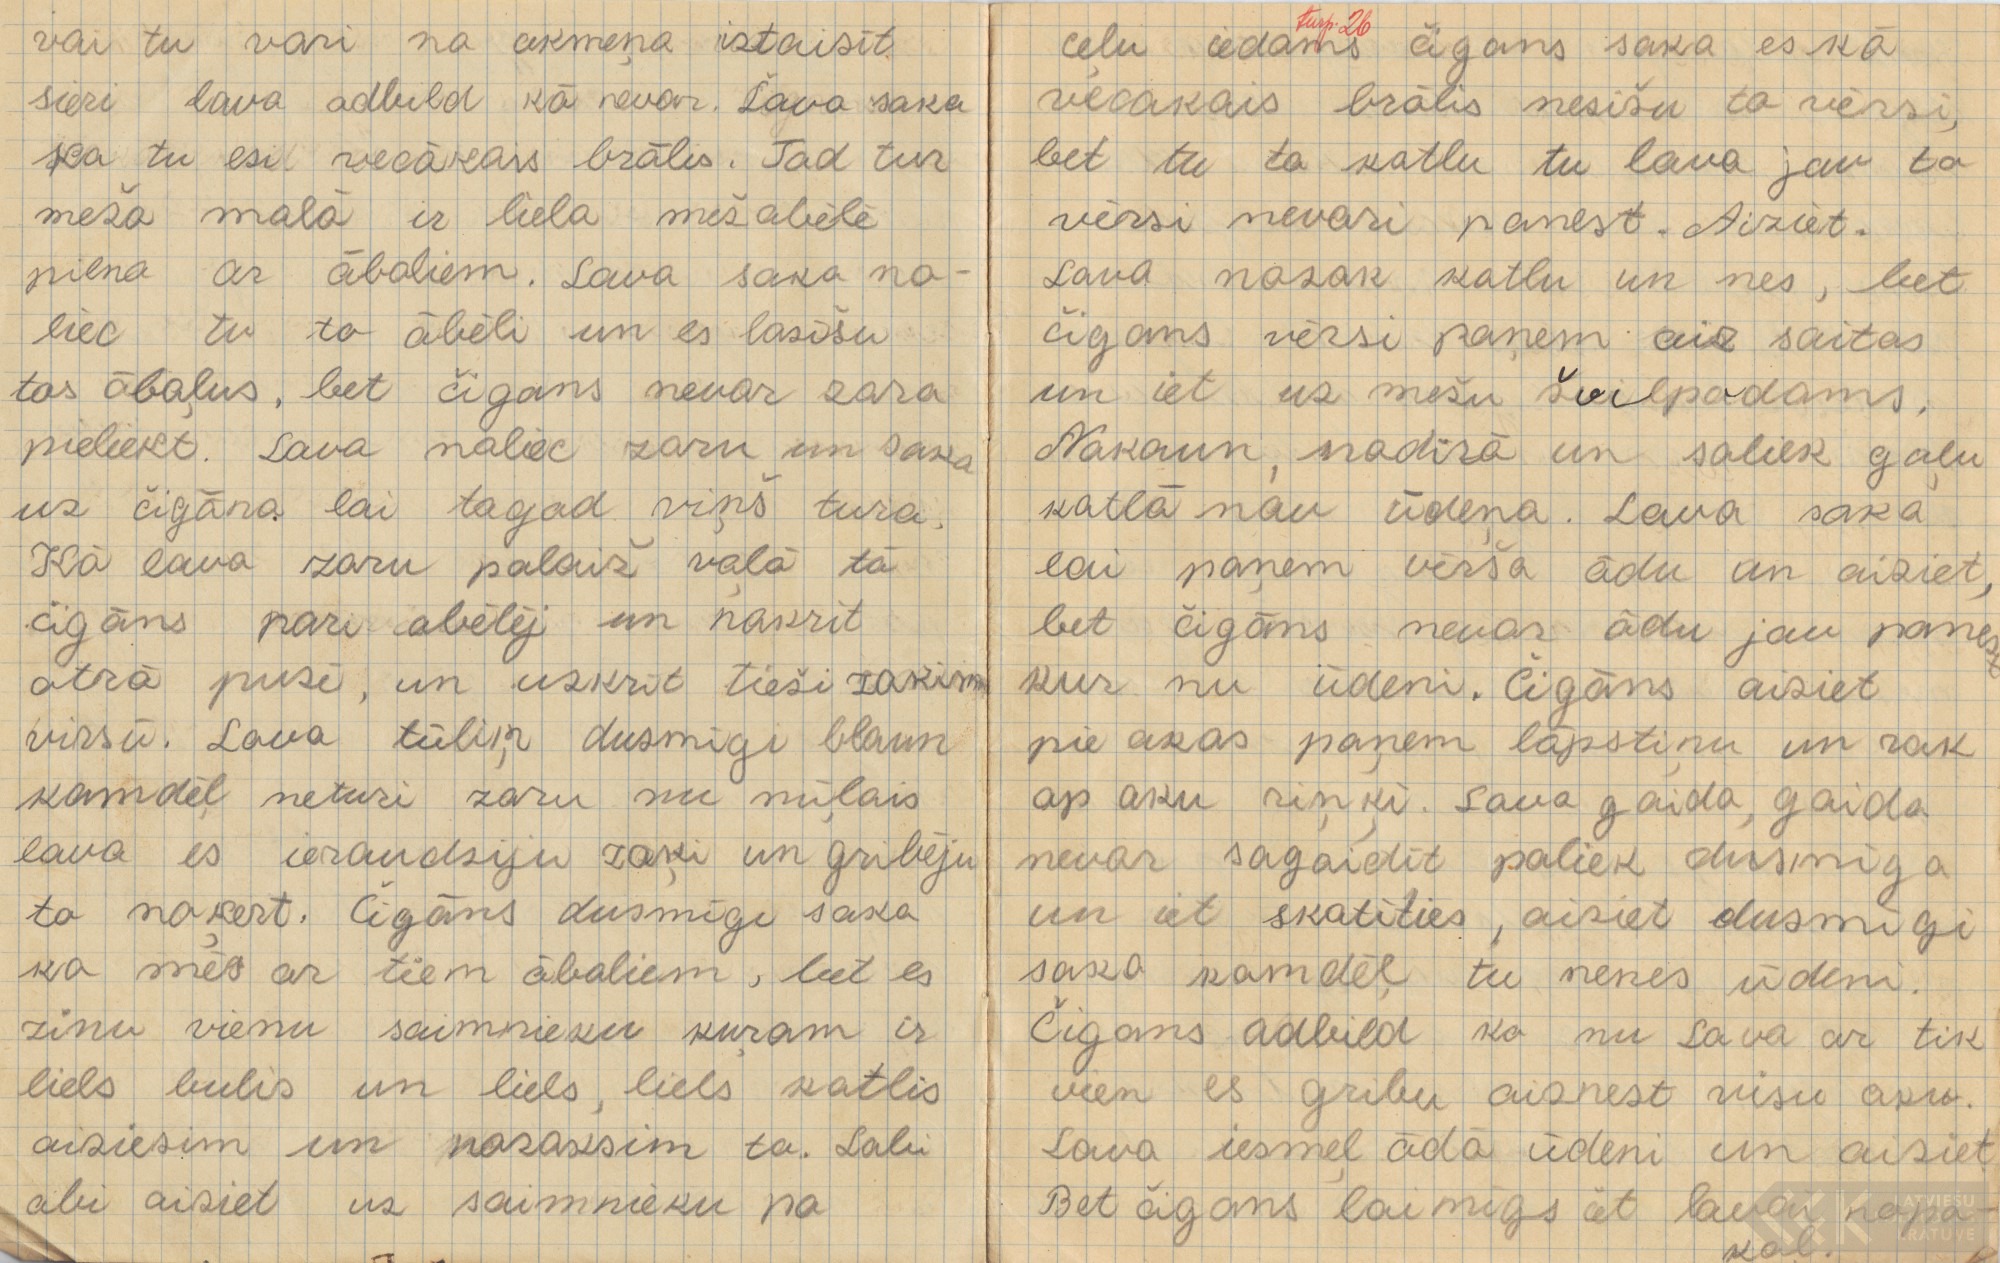 vai tu vari na akmeņa iztaisīt
sieri lava adbild kā nevar. Lava saka
ka tu esi vecākais brālis. Tad tur
meža malā ir liela mežabēle
pilna ar ābaliem. Lava saka na-
liec tu to ābeli un es lasīšu
tas ābaļus, bet čigans nevar zara
pieliekt. Lava naliec zaru un saka
uz čigāna lai tagad viņš tura.
Kā lava zaru palaiž vaļā tā
čigāns pari abēlēj un nakrīt
atrā pusē, un uzkrīt tieši zaķim
virsū. Lava tūliņ dusmīgi blaun
kamdēļ neturi zaru nu mīļais
lava es ieraudziju zaķi un gribēju
to naķert. Čigāns dusmīgi saka
ka mēs ar tiem ābaliem, bet es
zinu vienu saimnieku kuŗam ir
liels bulis un liels, liels katlis
aiziesim un nazaksim to. Labi
abi aiziet uz saimnieku pa
turp. 26
ceļu iedams čigans saka es kā
vecakais brālis nesišu to vērsi,
bet tu to katlu tu lava jau to
vērsi nevari panest. Aiziet.
Lava nozak katlu un nes, bet
čigans vērsi paņem aiz saitas
un iet uz mežu švilpodams.
Nakaun, nadīrā un saliek gaļu
katlā nav ūdeņa. Lava saka
lai paņem vērša ādu un aiziet,
bet čigāns nevar ādu jau panest
kur nu ūdeni. Čigāns aiziet
pie akas paņem lāpstiņu un rak
ap aku riņķi. Lava gaida, gaida
nevar sagaidīt paliek dusmīga
un iet skatīties, aiziet dusmīgi
saka kamdēļ tu nenes ūdeni.
Čigans adbild ko nu Lava ar tik
vien es gribu aiznest visu aku.
Lava iesmeļ ādā ūdeni un aiziet
Bet čigans laimīgs iet lavai napa-
kaļ.
LATVIEŠU
KRĀTUVE